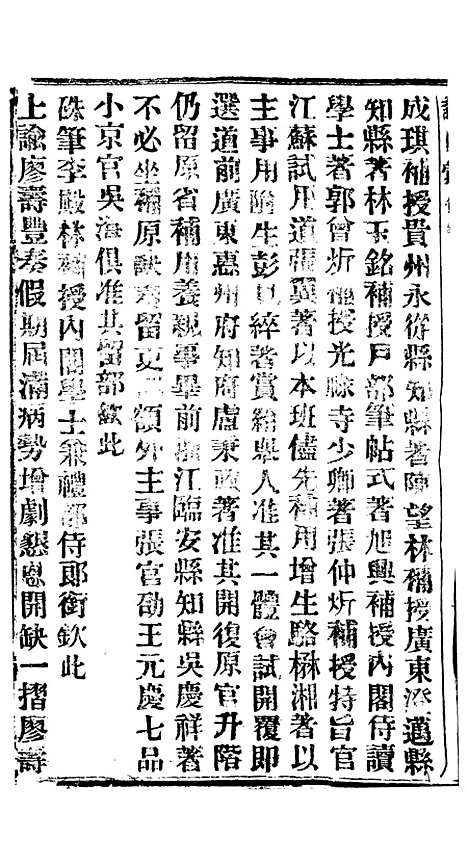 成琪補授貴州永從縣知縣著陳望林補授廣東澄邁縣
知縣著林玉銘補授戶部筆帖式著旭興補授內閣侍讀
學士著郭曾炘補授光祿寺少卿著張仲炘補授特旨官
江蘇試用道張翼著以本班儘先補用增生駱楙湘著以
主事用附生彭 綍著賞給舉人准其一體會試開覆即
選道前廣東惠州府知府盧秉政著准其開復原官升階
仍留原省補用養親事畢前 江臨安縣知縣吳慶祥著
不必坐補原缺奏留吏 額外主事張官劭王元慶七品
小京官吳 俱准其留部欽此
硃筆李殿林補授內閣學士兼禮部侍郎銜欽此
上諭廖壽豐奏假期屆滿病勢增劇懇恩開缺一摺廖壽